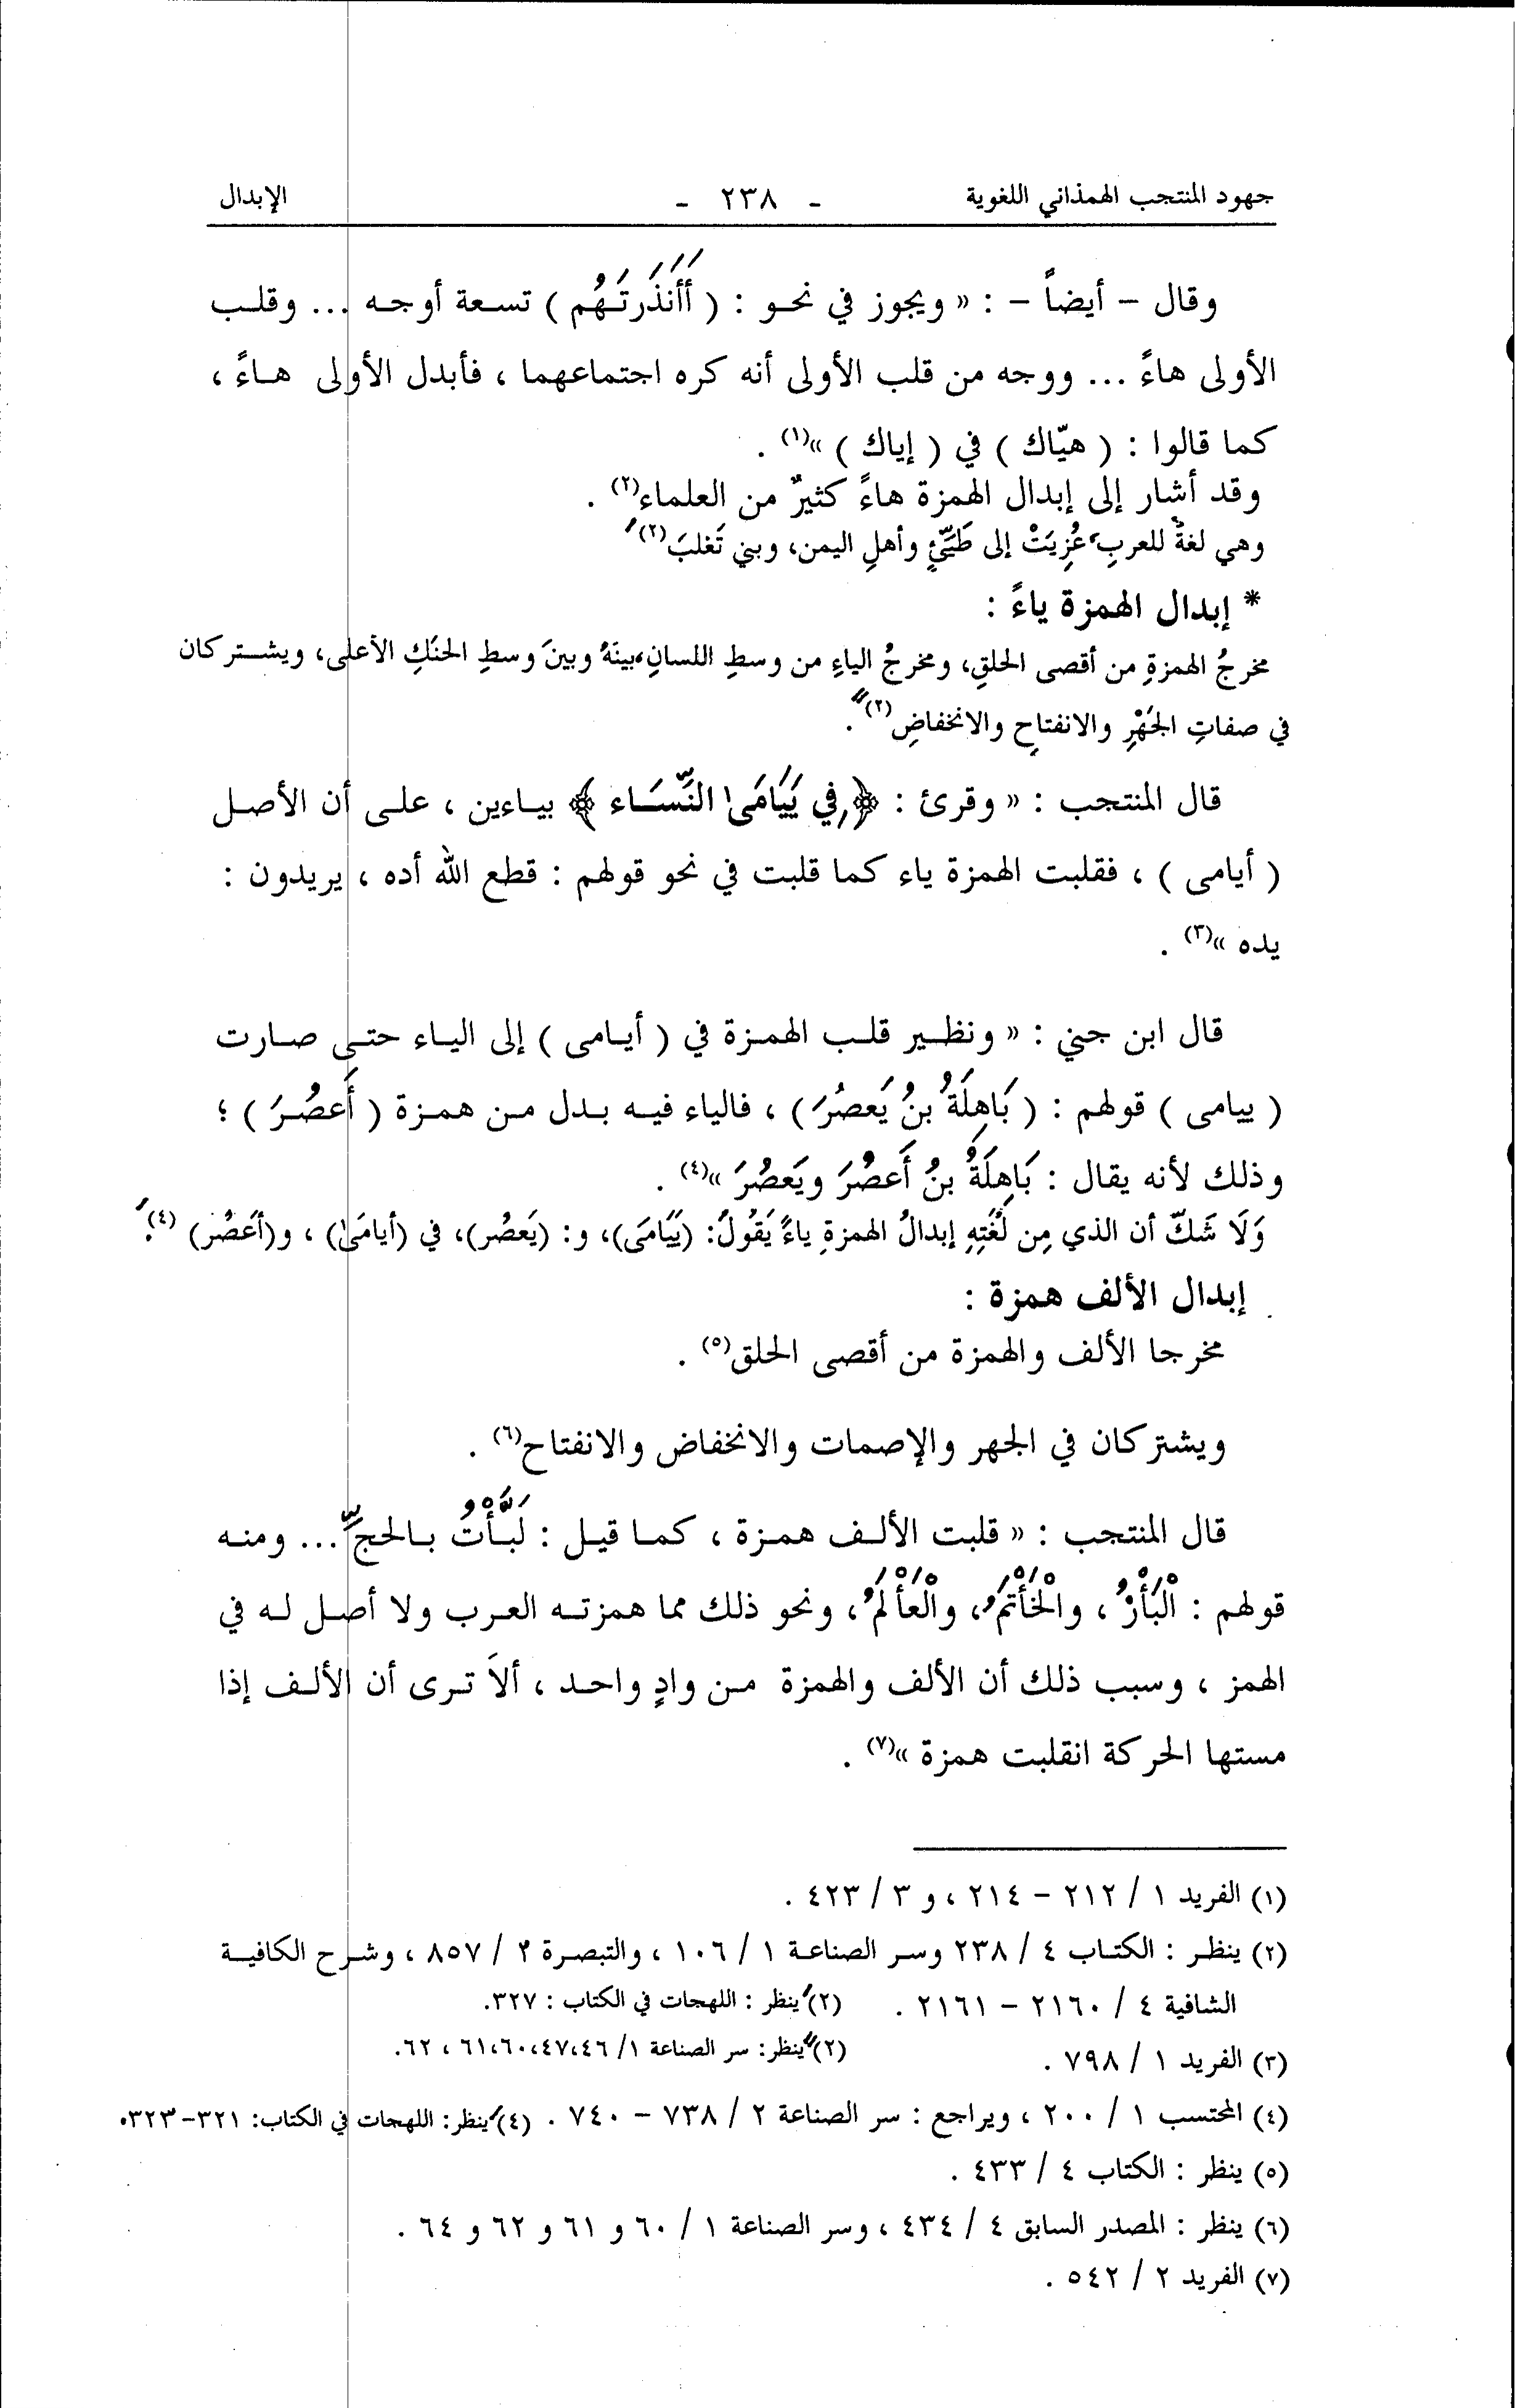 جهود المنتجب الهمذاني اللغوية - ٢٣٨ - الإبدال
وقال – أيضاً – : « ويجوز في نحو : ( أَأَنذَرتَهُم ) تسعة أوجه ... وقلب
الأولى هاءً ... ووجه من قلب الأولى أنه كره اجتماعهما ، فأبدل الأولى هاءً ،
كما قالوا : ( هيّاك ) في ( إياك ) »(١) .
وقد أشار إلى إبدال الهمزة هاءً كثيرٌ من العلماء(٢) .
وهي لغةٌ للعربِ، عُزِيَتْ إلى طَيِّئٍ وأهلِ اليمن، وبني تَغلبَ(٢)َ
* إبدال الهمزة ياءً :
مخرجُ الهمزةِ من أقصى الحلقِ، ومخرجُ الياءِ من وسطِ اللسانِ، بينَهُ وبينَ وسطِ الحنَكِ الأعلى، ويشتركان
في صفاتِ الجَهْرِ والانفتاحِ والانخفاضِ(٢)ً .
قال المنتجب : « وقرئ : ﴿ فِي يَيَامَى النِّسَاء ﴾ بياءين ، على أن الأصل
( أيامى ) ، فقلبت الهمزة ياء كما قلبت في نحو قولهم : قطع الله أده ، يريدون :
يده »(٣) .
قال ابن جني : « ونظير قلب الهمزة في ( أيامى ) إلى الياء حتى صارت
( ييامى ) قولهم : ( بَاهِلَةُ بنُ يَعصُرَ ) ، فالياء فيه بدل من همزة ( أَعصُرَ ) ؛
وذلك لأنه يقال : بَاهِلَةُ بنُ أَعصُرَ ويَعصُرَ »(٤) .
وَلَا شَكّ أن الذي مِن لُغَتِهِ إبدالُ الهمزةِ ياءً يَقُولُ: (يَيَامَى)، و: (يَعصُر)، في (أيامَىٰ) ، و(أَعَصُر) (٤)َ.
إبدال الألف همزة :
مخرجا الألف والهمزة من أقصى الحلق(٥) .
ويشتركان في الجهر والإصمات والانخفاض والانفتاح(٦) .
قال المنتجب : « قلبت الألف همزة ، كما قيل : لَبَّأْتُ بالحجِّ ... ومنه
قولهم : الْبَأْزُ ، والْخَأْتَمُ ، والْعَأْلَمُ ، ونحو ذلك مما همزته العرب ولا أصل له في
الهمز ، وسبب ذلك أن الألف والهمزة من وادٍ واحد ، ألاَ ترى أن الألف إذا
مستها الحركة انقلبت همزة »(٧) .
(١) الفريد ١ / ٢١٢ – ٢١٤ ، و ٣ / ٤٢٣ .
(٢) ينظر : الكتاب ٤ / ٢٣٨ وسر الصناعة ١ / ١٠٦ ، والتبصرة ٢ / ٨٥٧ ، وشرح الكافية
الشافية ٤ / ٢١٦٠ – ٢١٦١ . (٢)َ ينظر : اللهجات في الكتاب : ٣٢٧.
(٢)ً ينظر: سر الصناعة ١/ ٤٦،٤٧،٦٠،٦١ ، ٦٢.
(٣) الفريد ١ / ٧٩٨ .
(٤) المحتسب ١ / ٢٠٠ ، ويراجع : سر الصناعة ٢ / ٧٣٨ – ٧٤٠ . (٤)َ ينظر: اللهجات في الكتاب: ٣٢١-٣٢٣.
(٥) ينظر : الكتاب ٤ / ٤٣٣ .
(٦) ينظر : المصدر السابق ٤ / ٤٣٤ ، وسر الصناعة ١ / ٦٠ و ٦١ و ٦٢ و ٦٤ .
(٧) الفريد ٢ / ٥٤٢ .